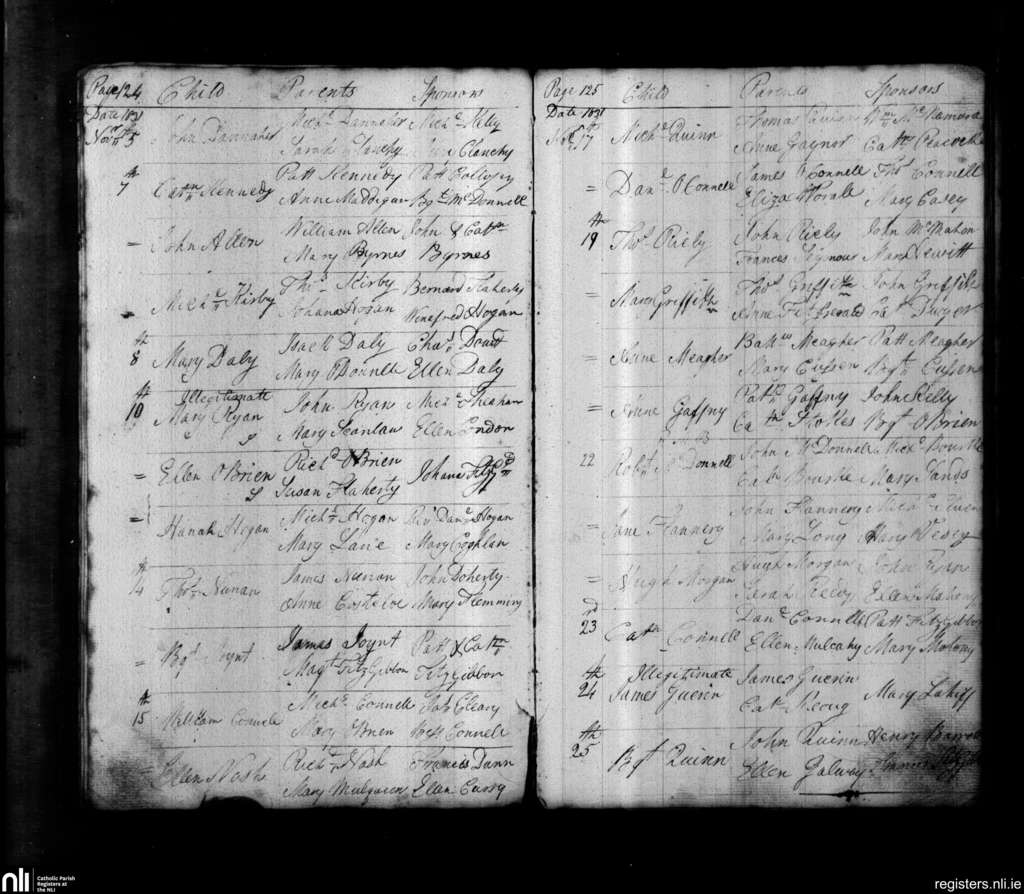 Page 124 Child Parents Sponsors
Date 1831
Novr 5 John Dannaher Michl Dannaher Michl Kelly
Sarah Clanchy
7th Cathn Kennedy Patt Kennedy Patt
Anne Maddigan Bgt McDonnell
= John Allen William Allen John & Cathn
Mary Byrnes Byrnes
= Michl Kirby Thos Kirby Bernard Flaherty
Johana Hogan Winefred Hogan
8th Mary Daly Isaek Daly Chas
Mary O'Donnell Ellen Daly
10th Illegitimate
Mary Ryan John Ryan Michl Sheahan
Mary Scanlan Ellen Condon
= Ellen O'Brien Richd O'Brien Johana
Susan Flaherty
= Hanah Hogan Michl Hogan Revd Danl Hogan
Mary Lane Mary Coghlan
14th Thos Nunan James Nunan John Doherty
Anne Costeloe Mary Flemming
= Bgt Joynt James Joynt Patt & Cathn
Magt FitzGibbon Fitzgibbon
15th William Connell Michl Connell Cleary
Mary Brien Connell
Ellen Nash Richd Nash Francis Dann
Mary Mulqueen Ellen Curry
Page 125 Child Parents Sponsors
Date 1831
Novr 17th Michl Quinn Thomas Quinn Wm McNamara
Anne Gaynor Cath Peacocke
= Danl O'Connell James O'Connell Thos Connell
Eliza Worall Mary Casey
19th Thos Riely John Riely John McMahon
Frances Seymour Mary Hewitt
= Mary Griffith Thos Griffith John Griffith
Anne Fitzgerald Cath Dwyer
= Anne Meagher Matthw Meagher Patt Meagher
Mary Cussen Bgt Cussen
= Anne Gaffny Patk Gaffny John Kelly
Cathn Stokles Bgt O'Brien
22 Robt McDonnell John McDonnell Michl Bourke
Cath Bourke Mary Sands
= Jane Flannery John Flannery Michl
Mary Long Mary Vesey
= Hugh Morgan Hugh Morgan John Ryan
Sarah Reedy Ellen Mahony
23rd Cathn Connell Danl Connell Patt FitzGibbon
Ellen Mulcahy Mary Molony
24th Illegitimate
James Guerin James Guerin Mary Lahiff
Cath Keoug
25th Bgt Quinn John Quinn Henry
Ellen Galway
nli Catholic Parish
Registers at
the NLI
registers.nli.ie